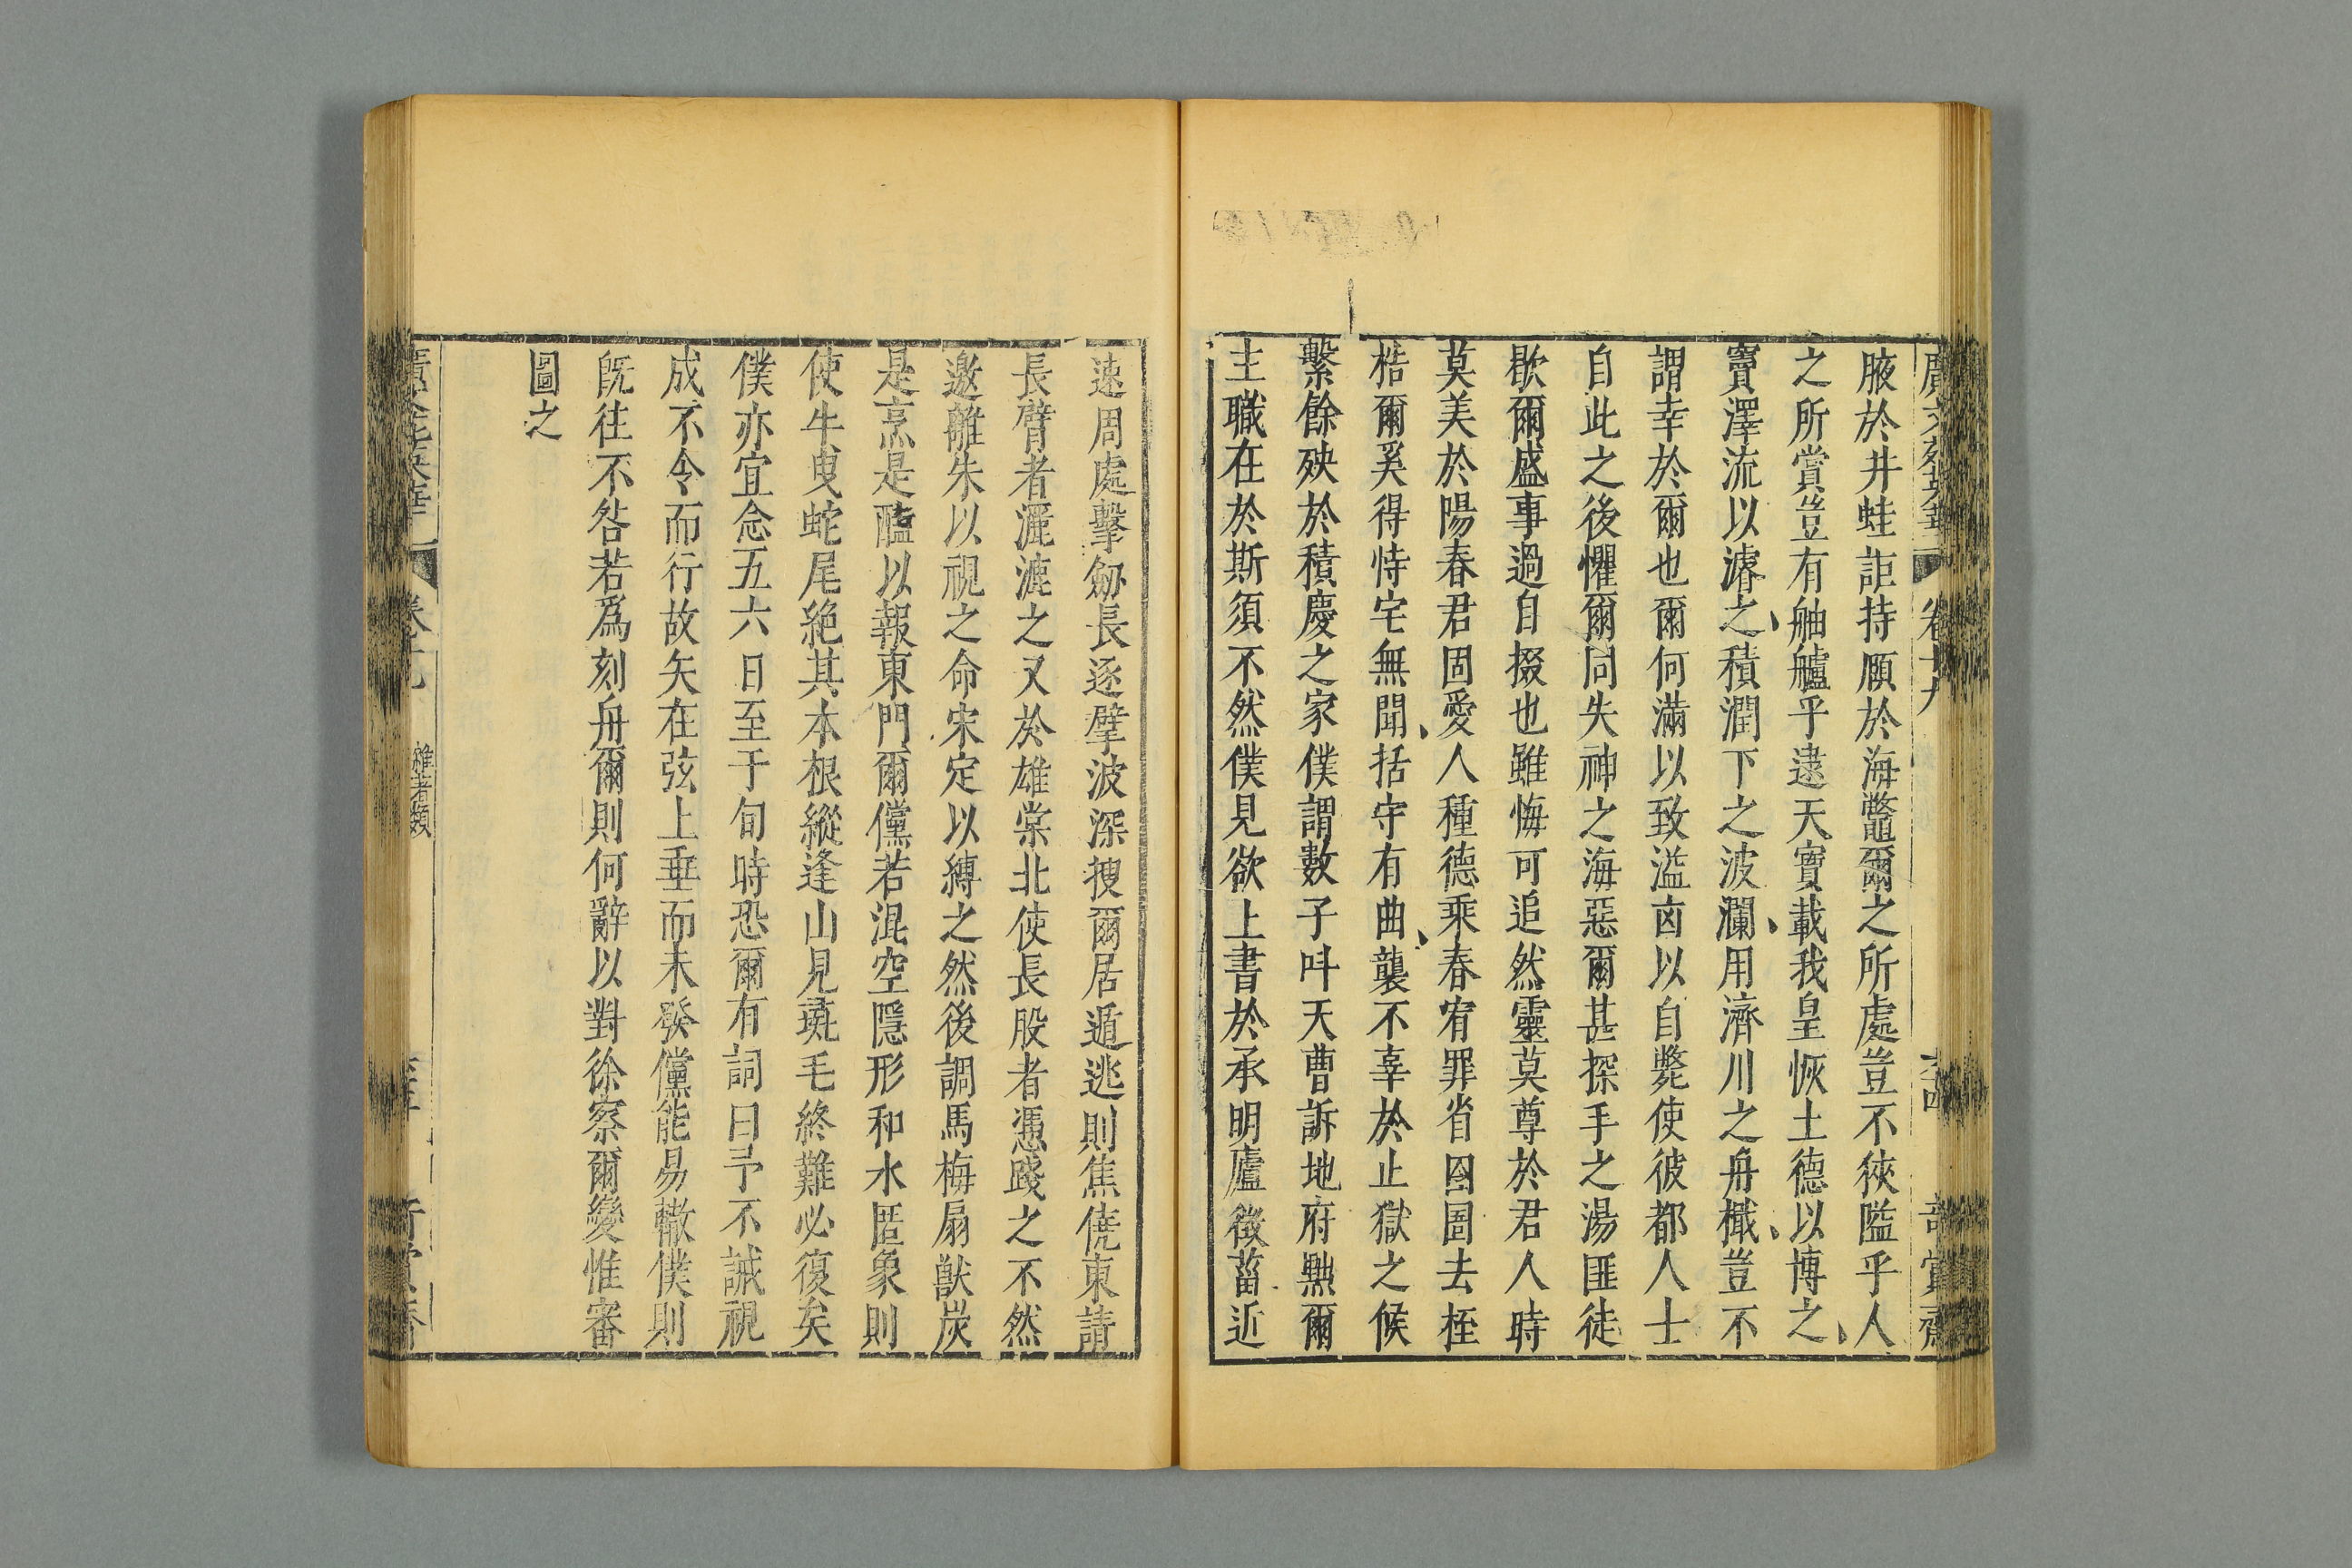 腋於井蛙詎持頤於海鼈爾之所處豈不狹隘乎人
之所賞豈有舳艫乎逮天寶載我皇恢土德以博之
竇澤流以濬之積潤下之波瀾用濟川之舟檝豈不
謂幸於爾也爾何滿以致溢卤以自斃使彼都人士
自此之後懼爾同失神之海惡爾甚探手之湯匪徒
歇爾盛事過自掇也雖悔可追然靈莫尊於君人時
莫美於陽春君固愛人種德乘春宥罪省囹圄去桎
梏爾奚得恃宅無聞括守有曲襲不辜於止獄之候
繫餘殃於積慶之家僕謂數子呌天曹訴地府黜爾
主職在於斯須不然僕見欲上書於承明廬徵菑近
速周處擊劒長逐擘波深捜爾居遁逃則焦僥東請
長臂者灑漉之又於雄棠北使長股者憑踐之不然
邀離朱以視之命宋定以縛之然後調馬梅扇獸炭
是烹是醢以報東門爾儻若混空隱形和水匿象則
使牛曳蛇尾絶其本根縱逢山見㲠毛終難必復矣
僕亦宜念五六日至于旬時恐爾有詞曰予不誡視
成不令而行故矢在弦上垂而未發儻能易轍僕則
旣往不咎若爲刻舟爾則何辭以對徐察爾變惟審
圖之
卷十九
雜著類